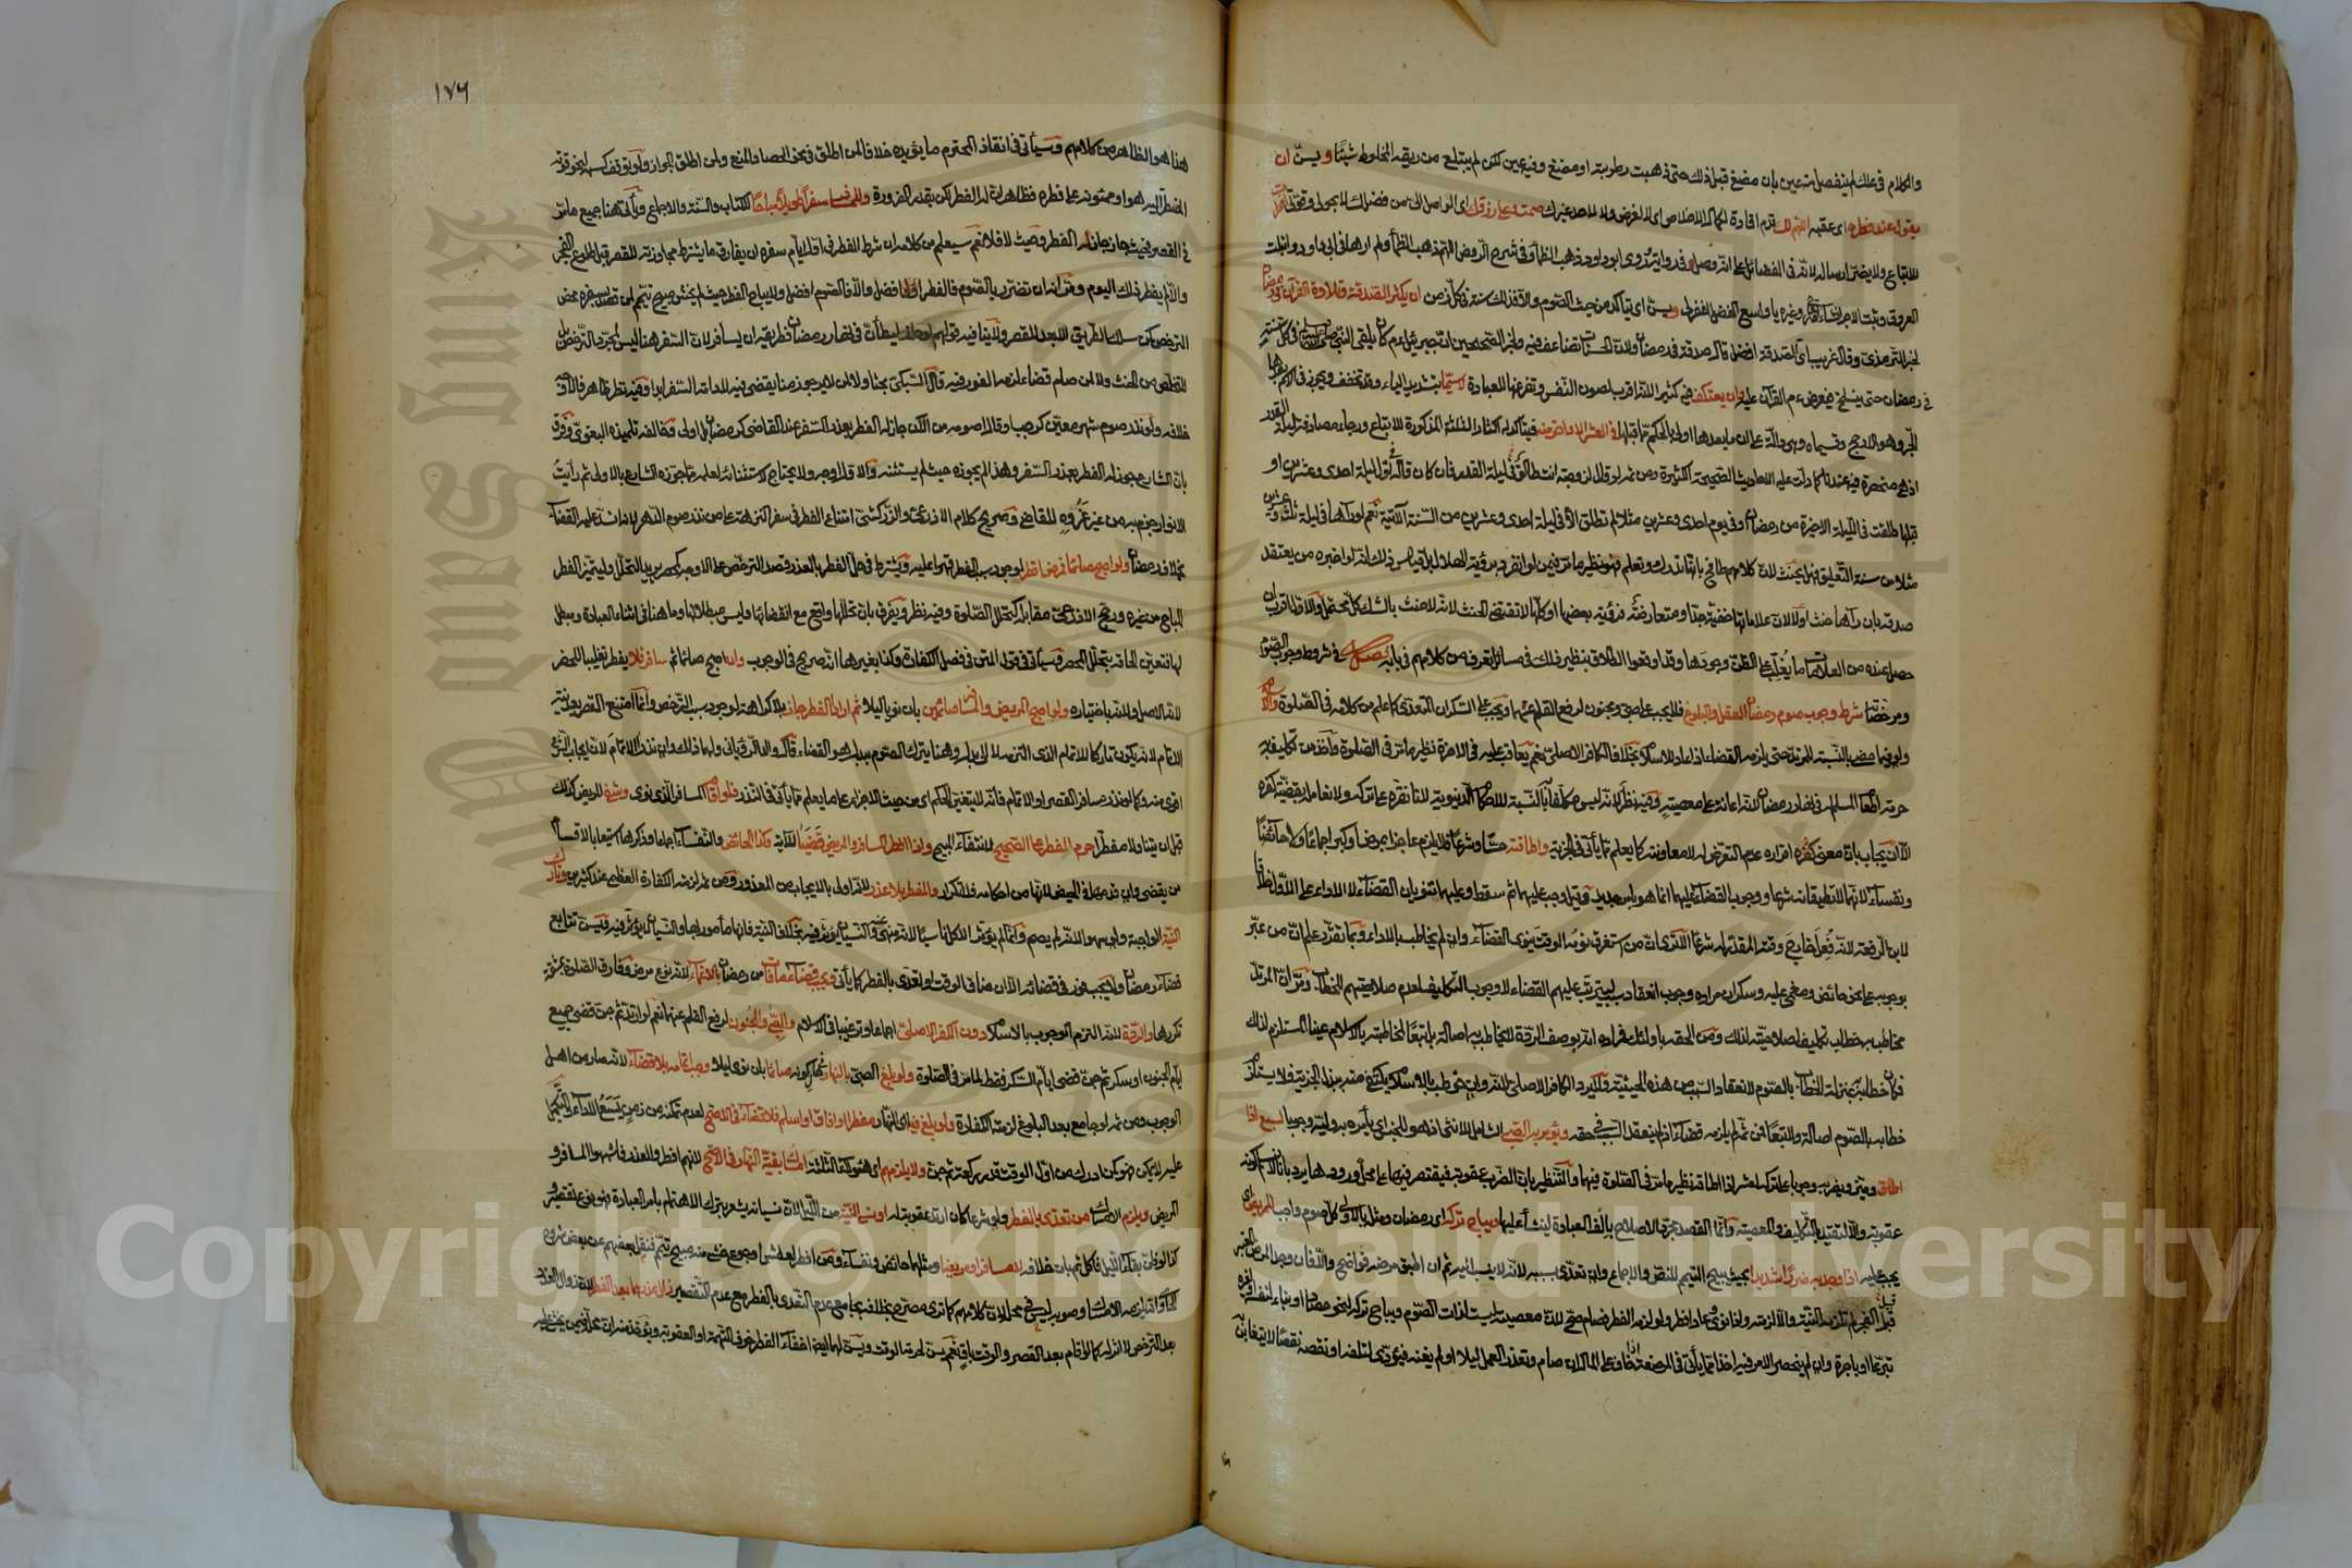 والكلام في علك لم ينفصل منه عين بان مضغ قبل ذلك حتى ذهبت رطوبته او مضغ وفيه عين لكن لم يبتلع من ريقه المخلوط شيئا ويسن ان
يقول عند فطره اى عقبه اللهم لك قدم افادة لكمال الاخلاص اى لا لغرض ولا لاحد غيرك صمت وعلى رزقك اى الواصل الى من فضلك لا بحولى وقوتى افطرت
للاتباع ولا يضر ارساله لانه في الفضائل على انه وصل في رواية وروى ابو داود ذهب الظمأ وفي شرح الروض اللهم ذهب الظمأ ولم ارها في ابى داود وابتلت
العروق وثبت الاجر ان شاء الله وغيره يا واسع الفضل اغفر لى ويسن اى يتأكد من حيث الصوم والا فذلك سنة في كل زمن ان يكثر الصدقة وتلاوة القرآن في رمضان
لخبر الترمذى وقال غريب اى الصدقة افضل قال صدقة في رمضان ولان الحسنات تضاعف فيه ولخبر الصحيحين ان جبريل عم كان يلقى النبى صلى الله عليه وسلم في كل سنة
في رمضان حتى ينسلخ فيعرض عم القرآن عليه وان يعتكف فيه كثيرا لانه اقرب لصون النفس وتفرغها للعبادة لا سيما بتشديد الياء وقد تخفف ويجوز في الاسم بعدها
الجر وهو الارجح وقسيماه وهي دالة على ان ما بعدها اولى بالحكم مما قبلها في العشر الاواخر منه فيتأكد له اكثار الثلاثة المذكورة للاتباع ورجاء مصادفة ليلة القدر
اذ هي منحصرة فيه عندنا كما دلت عليه الاحاديث الصحيحة الكثيرة ومن ثم لو قال لزوجته انت طالق في ليلة القدر فان كان قاله اول ليلة احدى وعشرين او
قبلها طلقت في الليلة الاخيرة من رمضان او في يوم احدى وعشرين مثلا لم تطلق الا في ليلة احدى وعشرين من السنة الآتية نعم لو رآها في ليلة ثلاث وعشرين
مثلا من سنة التعليق فهل يحنث لان كلامهم طافح بانها تدرك وتعلم فهو نظير ما مر فيمن لو انفرد برؤية الهلال بل قياس ذلك انه لو اخبره من يعتقد
صدقه بان رآها حنث او لا لان علاماتها خفية جدا ومتعارضة فرؤية بعضها او كلها لا تقتضى الحنث لانه لا حنث بالشك كل محتمل والاول اقرب ان
حصل عنده من العلامات ما يغلب على الظن وجودها وقد اوقعوا الطلاق بنظير ذلك في مسائل تعرف من كلامهم في بابه فصل في شروط وجوب الصوم
ومرخصاته شرط وجوب صوم رمضان العقل والبلوغ فلا يجب على صبى ومجنون لرفع القلم عنهما ويجب على السكران المتعدى كما علم من كلامه في الصلاة والاسلام
ولو فيما مضى بالنسبة للمرتد حتى يلزمه القضاء اذا عاد للاسلام بخلاف الكافر الاصلى نعم يعاقب عليه في الآخرة نظير ما مر في الصلوة واخذ من تكليفه به
حرمة اطعام المسلم له في نهار رمضان لانه اعانة على معصية وفيه نظر لانه ليس مكلفا به بالنسبة للاحكام الدنيوية لانا نقره على تركه ولا نعامله بقضية كفره
الا ان يجاب بان معنى كفره اقراره عدم التعرض له لا معاونته كما يعلم مما يأتى في الجزية واطاقته حسا وشرعا فلا يلزم عاجزا بمرض او كبر اجماعا ولا حائضا
ونفساء لانهما لا تطيقانه شرعا ووجوب القضاء عليهما انما هو بامر جديد وقيل وجب عليهما ثم سقط وعليهما ينويان القضاء لا الاداء على الاول خلافا
لابن الرفعة لانه فعل خارج وقته المقدر له شرعا الا ترى ان من استغرق نومه الوقت ينوى القضاء وان لم يخاطب بالاداء وبما تقرر علم ان من عبر
بوجوبه على نحو حائض ومغمى عليه وسكران مراده وجوب انعقاد سبب ليترتب عليهم القضاء لا وجوب التكليف لعدم صلاحيتهم للخطاب ومر ان المرتد
مخاطب به خطاب تكليف لصلاحيته لذلك ومن الحقه باولئك فمراده انه بوصف الردة لا يخاطب به اصالة بل تبعا لمخاطبته بالاسلام عينا المستلزم لذلك
فكان خطابه بمنزلة الخطاب بالصوم لانعقاد السبب من هذه الحيثية ولا يرد الكافر الاصلى لانه وان خوطب بالاسلام يكتفى منه ببذل الجزية فلا يستلزم
خطابه بالصوم اصالة ولا تبعا فمن ثم لم يلزمه قضاء اذ لم ينعقد السبب في حقه ويؤمر به الصبى الشامل للانثى اذ هو للجنس اى يأمره به وليه وجوبا لسبع اذا
اطاق وميز ويضرب وجوبا على تركه لعشر اذا اطاقه نظير ما مر في الصلوة فيهما والتنظير بان الضرب عقوبة فيقتصر فيها على محل ورودها يرد بانا لا نسلم كونه
عقوبة والا لتقيد بالتكليف والمعصية وانما القصد مجرد الاصلاح بالف العبادة لينشأ عليها ويباح تركه اى رمضان ومثله بالاولى كل صوم واجب للمريض اى
يجب عليه اذا وجد به ضررا شديدا بحيث يبيح التيمم للنص والاجماع وان تعدى بسببه لانه لا ينسب اليه ثم ان اطبق مرضه فواضح والا فان وجد المرض المعتبر
قبيل الفجر لم تلزمه النية والا لزمته واذا نوى وعاد افطر ولو لزمه الفطر فصام صح لان معصيته ليست لذات الصوم ويباح تركه لنحو حصاد او بناء لنفسه او لغيره
تبرعا او باجرة وان لم ينحصر الامر فيه اخذا مما يأتى في المرضعة اذا خاف على المال ان صام وتعذر العمل ليلا او لم يغنه فيؤدى لتلفه او نقصه نقصا لا يتغابن به
١٧٦
هذا هو الظاهر من كلامهم وسيأتى في انقاذ المحترم ما يؤيده خلافا لمن اطلق في نحو الحصاد المنع ولمن اطلق الجواز ولو توقف كسبه لنحو قوته
المضطر اليه هو او ممونه على فطره فظاهر ان له الفطر لكن بقدر الضرورة وللمسافر سفرا طويلا مباحا للكتاب والسنة والاجماع ويأتى هنا جميع ما مر
في القصر فحيث جاز جاز له الفطر وحيث لا فلا نعم سيعلم من كلامه ان شرط الفطر في اول ايام سفره ان يفارق ما يشترط مجاوزته للقصر قبل طلوع الفجر
والا لم يفطر ذلك اليوم ومر انه ان تضرر بالصوم فالفطر افضل والا فالصوم افضل ولا يباح الفطر حيث لم يخش مبيح تيمم لمن قصد بسفره محض
الترخص كمن سلك الطريق الابعد للقصر ولا ينافيه قولهم لو حلف ليطأن في نهار رمضان فطريقه ان يسافر لان السفر هنا ليس لمجرد الترخص بل
للتخلص من الحنث ولا لمن صام قضاء لزمه الفور فيه قال السبكى بحثا ولا لمن لا يرجو زمنا يقضى فيه لادامته السفر ابدا وفيه نظر ظاهر فالاوجه
خلافه ولو نذر صوم شهر معين كرجب او قال اصومه من الآن جاز له الفطر بعذر السفر عند القاضى كرمضان بل اولى وخالفه تلميذه البغوى وفرق
بان الشارع جوز له الفطر بعذر السفر وهذا لم يجوزه حيث لم يستثنه والاول اوجه ولا يحتاج لاستثنائه لعلمه مما جوزه الشارع بالاولى ثم رأيت
الانوار جزم به من غير عزوه للقاضى وصريح كلام الاذرعى والزركشى امتناع الفطر في سفر النزهة على من نذر صوم الدهر لانه انسد عليه القضاء
بخلاف رمضان ولو اصبح صائما فمرض افطر لوجود سبب الفطر قهرا عليه ويشترط في حل الفطر بالعذر قصد الترخص على الاوجه كمحصر يريد التحلل وليتميز الفطر
المباح من غيره ورجح الاذرعى مقابله كتحلل الصلوة وفيه نظر ويفرق بان تحللها واقع مع انقضائها وليس مبطلا لها وما هنا في اثناء العبادة ومبطل
لها فتعين الحاقه بتحلل المحصر وسيأتى في قول المتن في فصل الكفارة وكذا بغيرها انه صريح في الوجوب وان اصبح صائما ثم سافر فلا يفطر تغليبا للحضر
لانه الاصل ولانه باختياره ولو اصبح المريض والمسافر صائمين بان نويا ليلا ثم ارادا الفطر جاز بلا كراهة لوجود سبب الترخص وانما امتنع القصر بعد نية
الاتمام لانه يكون تاركا للاتمام الذى التزمه لا الى بدل وهنا يترك الصوم ببدل هو القضاء قال والد الرويانى ولهما ذلك وان نذرا الاتمام لان ايجاب الشرع
اقوى منه وكما لو نذر مسافر القصر او الاتمام فانه لا يتغير الحكم اى من حيث الاجزاء على ما يعلم مما يأتى في النذر فلو اقام المسافر الذى نوى وشفى المريض كذلك
قبل ان يتناولا مفطرا حرم الفطر على الصحيح لانتفاء المبيح واذا افطر المسافر والمريض قضيا للآية وكذا الحائض والنفساء اجماعا وذكرها استيعابا لاقسام
من يقضى وان قدمها في الحيض لانها من احكامه فلا تكرار والمفطر بلا عذر لانه اولى بالايجاب من المعذور ومن ثم لزمته الكفارة العظمى عند كثيرين وتارك
النية الواجبة ولو سهوا لانه لم يصم وانما لم يؤثر الاكل ناسيا لانه منهى عنه والنسيان يؤثر فيه بخلاف النية فانها مأمور بها والنسيان لا يؤثر فيه ويسن تتابع
قضاء رمضان ولا يجب فور في قضائه الا ان ضاق الوقت او تعدى بالفطر كما يأتى ويجب قضاء ما فات من رمضان بالاغماء لانه نوع مرض وفارق الصلوة بمشقة
تكررها والردة لانه التزم الوجوب بالاسلام دون الكفر الاصلى اجماعا وترغيبا في الاسلام والصبى والجنون لرفع القلم عنهما نعم لو ارتد ثم جن قضى جميع
ايام الجنون او سكر ثم جن قضى ايام السكر فقط لما مر في الصلوة ولو بلغ الصبى بالنهار في حال كونه صائما بان نوى ليلا وجب اتمامه بلا قضاء لانه صار من اهل
الوجوب ومن ثم لو جامع بعد البلوغ لزمته الكفارة ولو بلغ فيه اى النهار مفطرا او افاق او اسلم فلا قضاء في الاصح لعدم تمكنه من زمن يسع الاداء والتكميل
عليه لا يمكن فهو كمن ادرك من اول الوقت قدر ركعة ثم جن ولا يلزمهم اى هؤلاء الثلاثة امساك بقية النهار في الاصح لانهم افطروا لعذر فاشبهوا المسافر و
المريض ويلزم الامساك من تعدى بالفطر ولو شرعا كان ارتد عقوبة له او نسى النية من الليل لان نسيانه يشعر بترك الاهتمام بامر العبادة فهو نوع تقصير و
كذا لو ظن بقاء الليل فاكل ثم بان خلافه لا مسافرا ومريضا ومثلهما حائض ونفساء ومن افطر لعطش او جوع خشى منه مبيح تيمم فنقل بعضهم عن بعض شروح
الحاوى انه يلزمه الامساك وصوبه ليس في محله لان كلامهم كما ترى مصرح بخلافه بجامع عدم التعدى بالفطر مع عدم التقصير زال عذرهما بعد الفطر اذ زوال العذر
بعد الترخص لا اثر له كما لو اقام بعد القصر والوقت باق نعم يسن لحرمة الوقت ويسن لهما ايضا اخفاء الفطر خوف التهمة او العقوبة ويؤخذ منه ان محله فيمن يخشى عليه